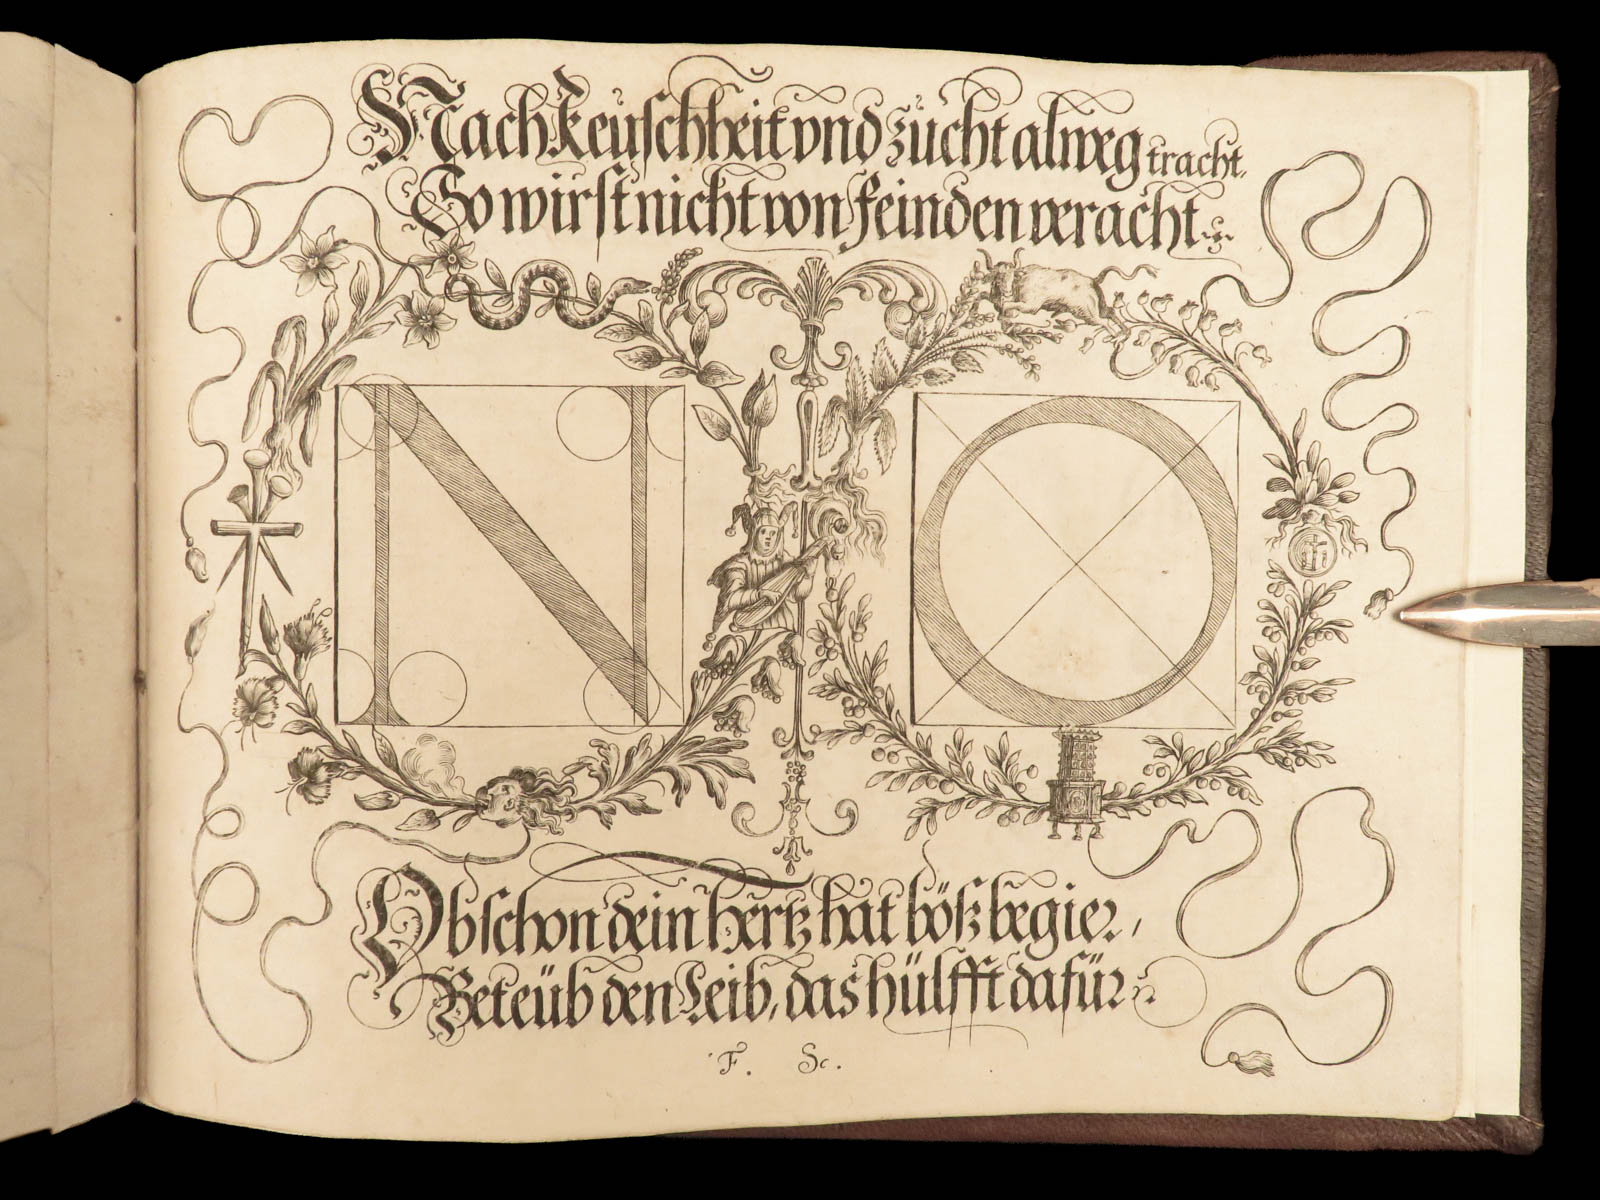 Nach keuschheit vnd zucht alweg tracht.
So wirst nicht von feinden veracht.
N O
Obschon dein hertz hat böß begier,
Beteüb den Leib, das hülfft dafür
F. Sc.